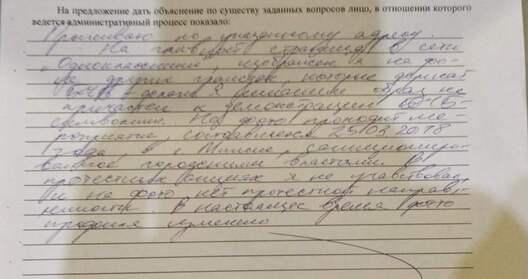 На предложение дать объяснение по существу заданных вопросов лицо, в отношении которого
ведется административный процесс показало:
Проживаю по указанному адресу.
На главной странице в сети
"Одноклассники", изображен я на фо-
не других граждан, которые держат
флаг я никаким образ не
причастен к демонстрации
символики. На фото проходит ме-
роприятие, состоявшееся 25.03.2018
года, в г. Минске, санкциониро-
ванное городскими властями. В
протестных акциях я не участвовал
и на фото нет протестной направ-
ленности. В настоящее время фото
профиля изменено